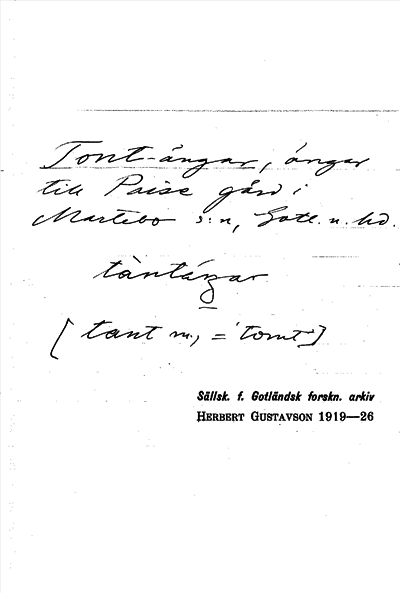 Tont-ängar, ängar
till Paise gård i
Martebo s:n, Gotl. n. hd.
tàntáŋar
[tant m., = 'tomt']
Sällsk. f. Gotländsk forskn. arkiv
HERBERT GUSTAVSON 1919—26